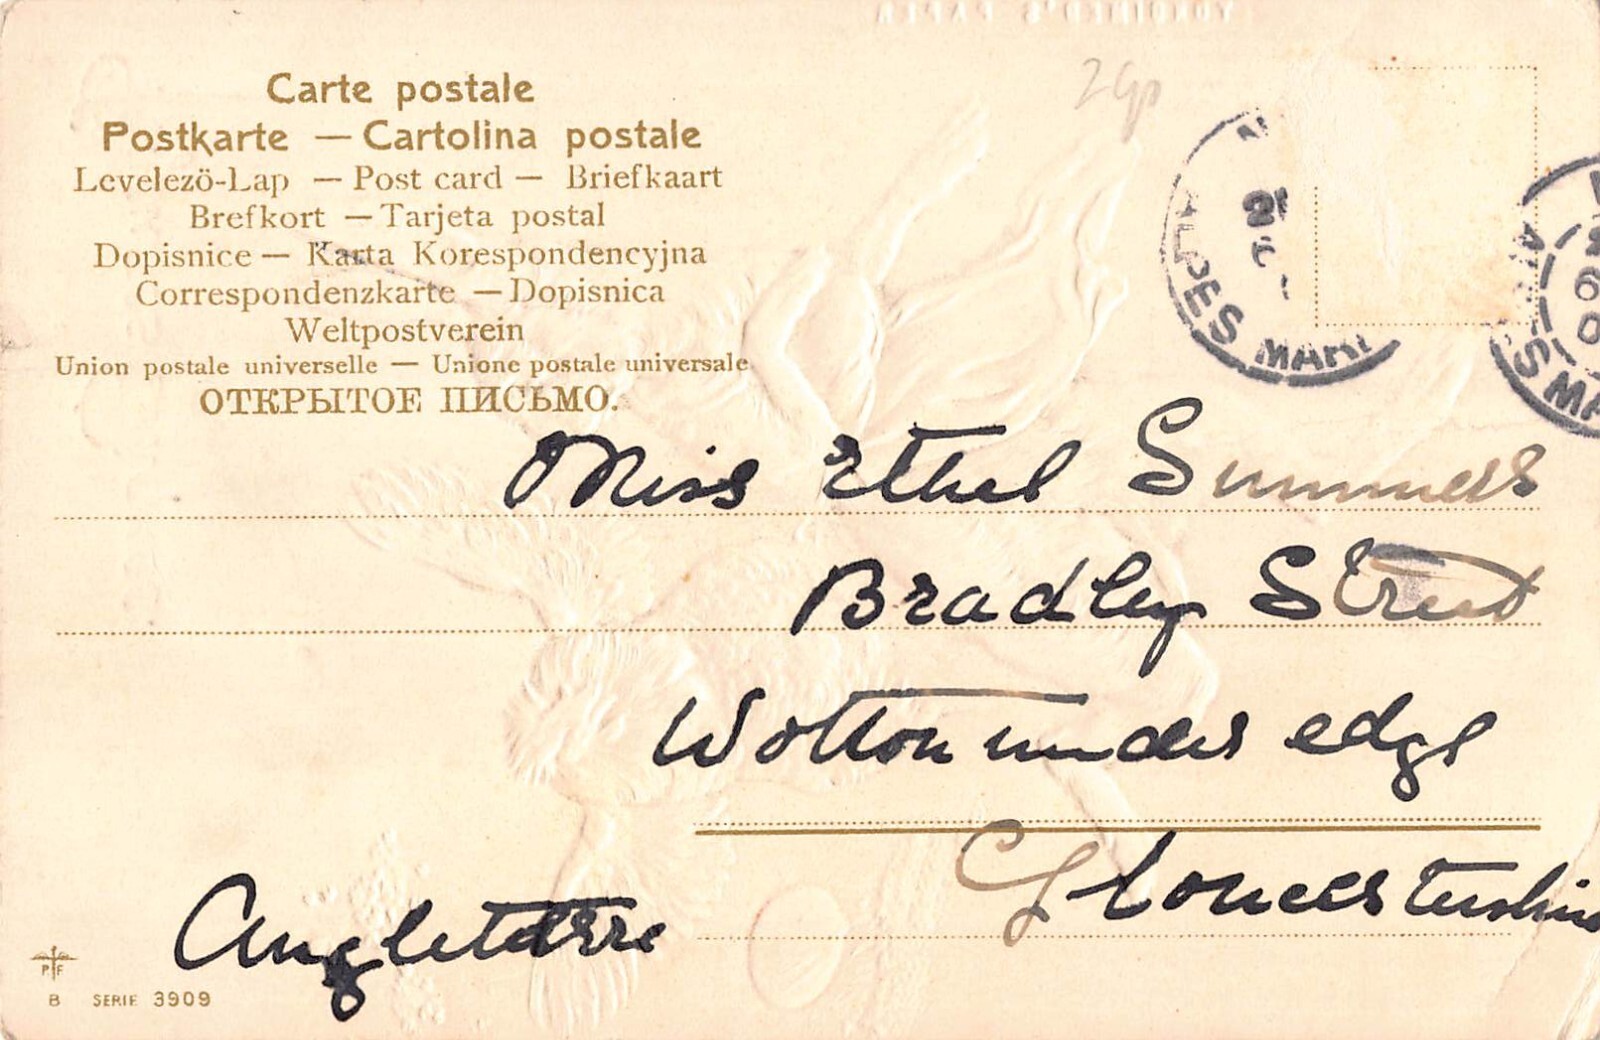 Carte postale
Postkarte — Cartolina postale
Levelezö-Lap — Post card — Briefkaart
Brefkort — Tarjeta postal
Dopisnice — Karta Korespondencyjna
Correspondenzkarte — Dopisnica
Weltpostverein
Union postale universelle — Unione postale universale
ОТКРЫТОЕ ПИСЬМО.
ALPES MARI
ES MA
Miss Ethel Summers
Bradley Street
Wotton under edge
Gloucestershire
Angleterre
PF
B SERIE 3909